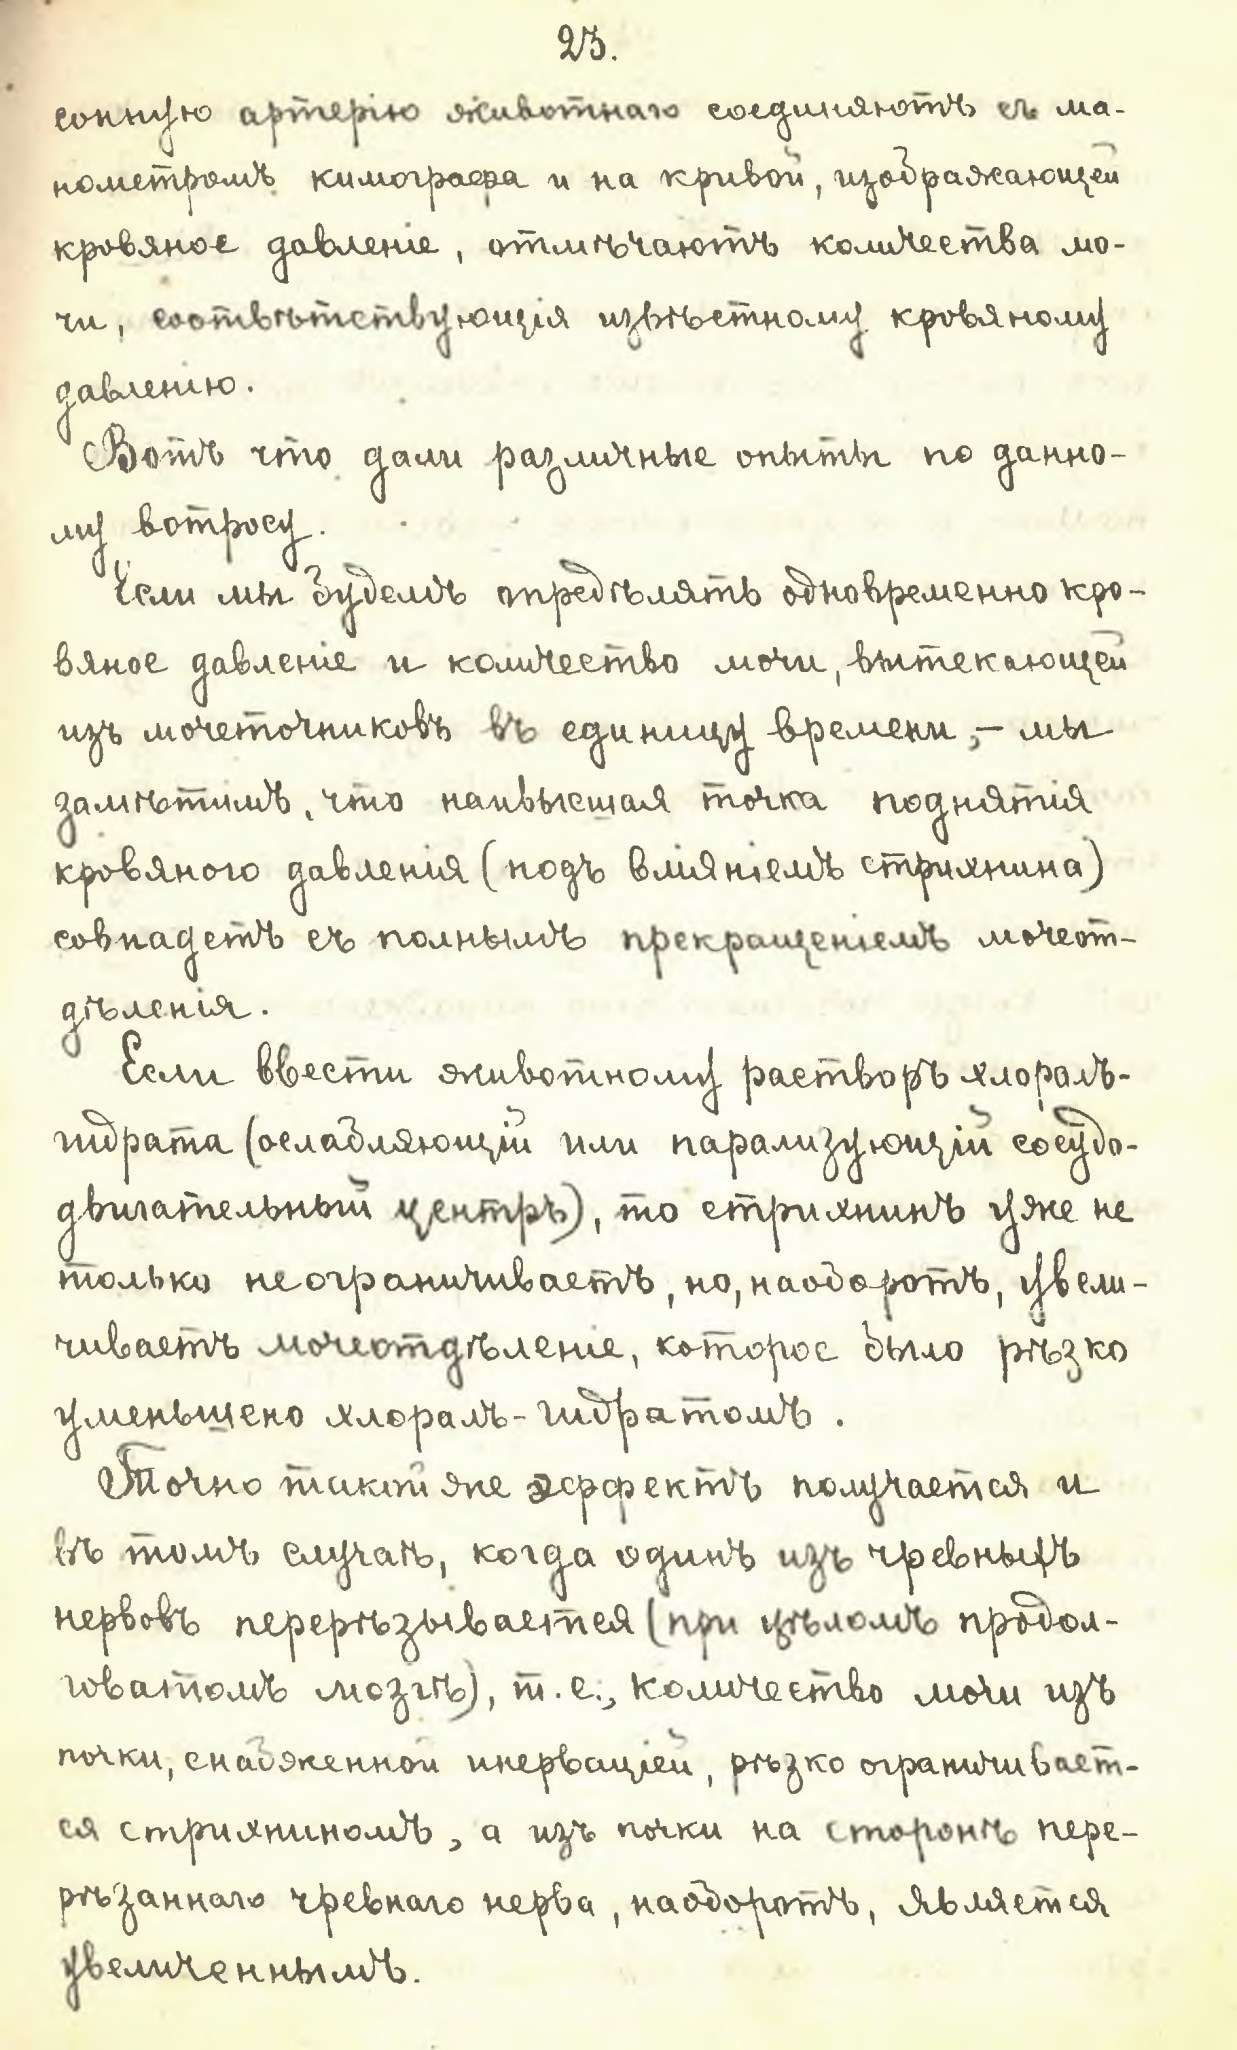 23.
сонную артерію животнаго соединяютъ съ ма-
нометромъ кимографа и на кривой, изображающей
кровяное давленіе, отмѣчаютъ количества мо-
чи, соотвѣтствующія извѣстному кровяному
давленію.
Вотъ что дали различные опыты по данно-
му вопросу.
Если мы будемъ опредѣлять одновременно кро-
вяное давленіе и количество мочи, вытекающей
изъ мочеточниковъ въ единицу времени, – мы
замѣтимъ, что наивысшая точка поднятія
кровяного давленія (подъ вліяніемъ стрихнина)
совпадетъ съ полнымъ прекращеніемъ мочеот-
дѣленія.
Если ввести животному растворъ хлоралъ-
гидрата (ослабляющій или парализующій сосудо-
двигательный центръ), то стрихнинъ уже не
только не ограничиваетъ, но, наоборотъ, увели-
чиваетъ мочеотдѣленіе, которое было рѣзко
уменьшено хлоралъ-гидратомъ.
Точно такой же эффектъ получается и
въ томъ случаѣ, когда одинъ изъ чревныхъ
нервовъ перерѣзывается (при цѣломъ продол-
говатомъ мозгѣ), т. е., количество мочи изъ
почки, снабженной инерваціей, рѣзко ограничивает-
ся стрихниномъ, а изъ почки на сторонѣ пере-
рѣзаннаго чревнаго нерва, наоборотъ, является
увеличеннымъ.